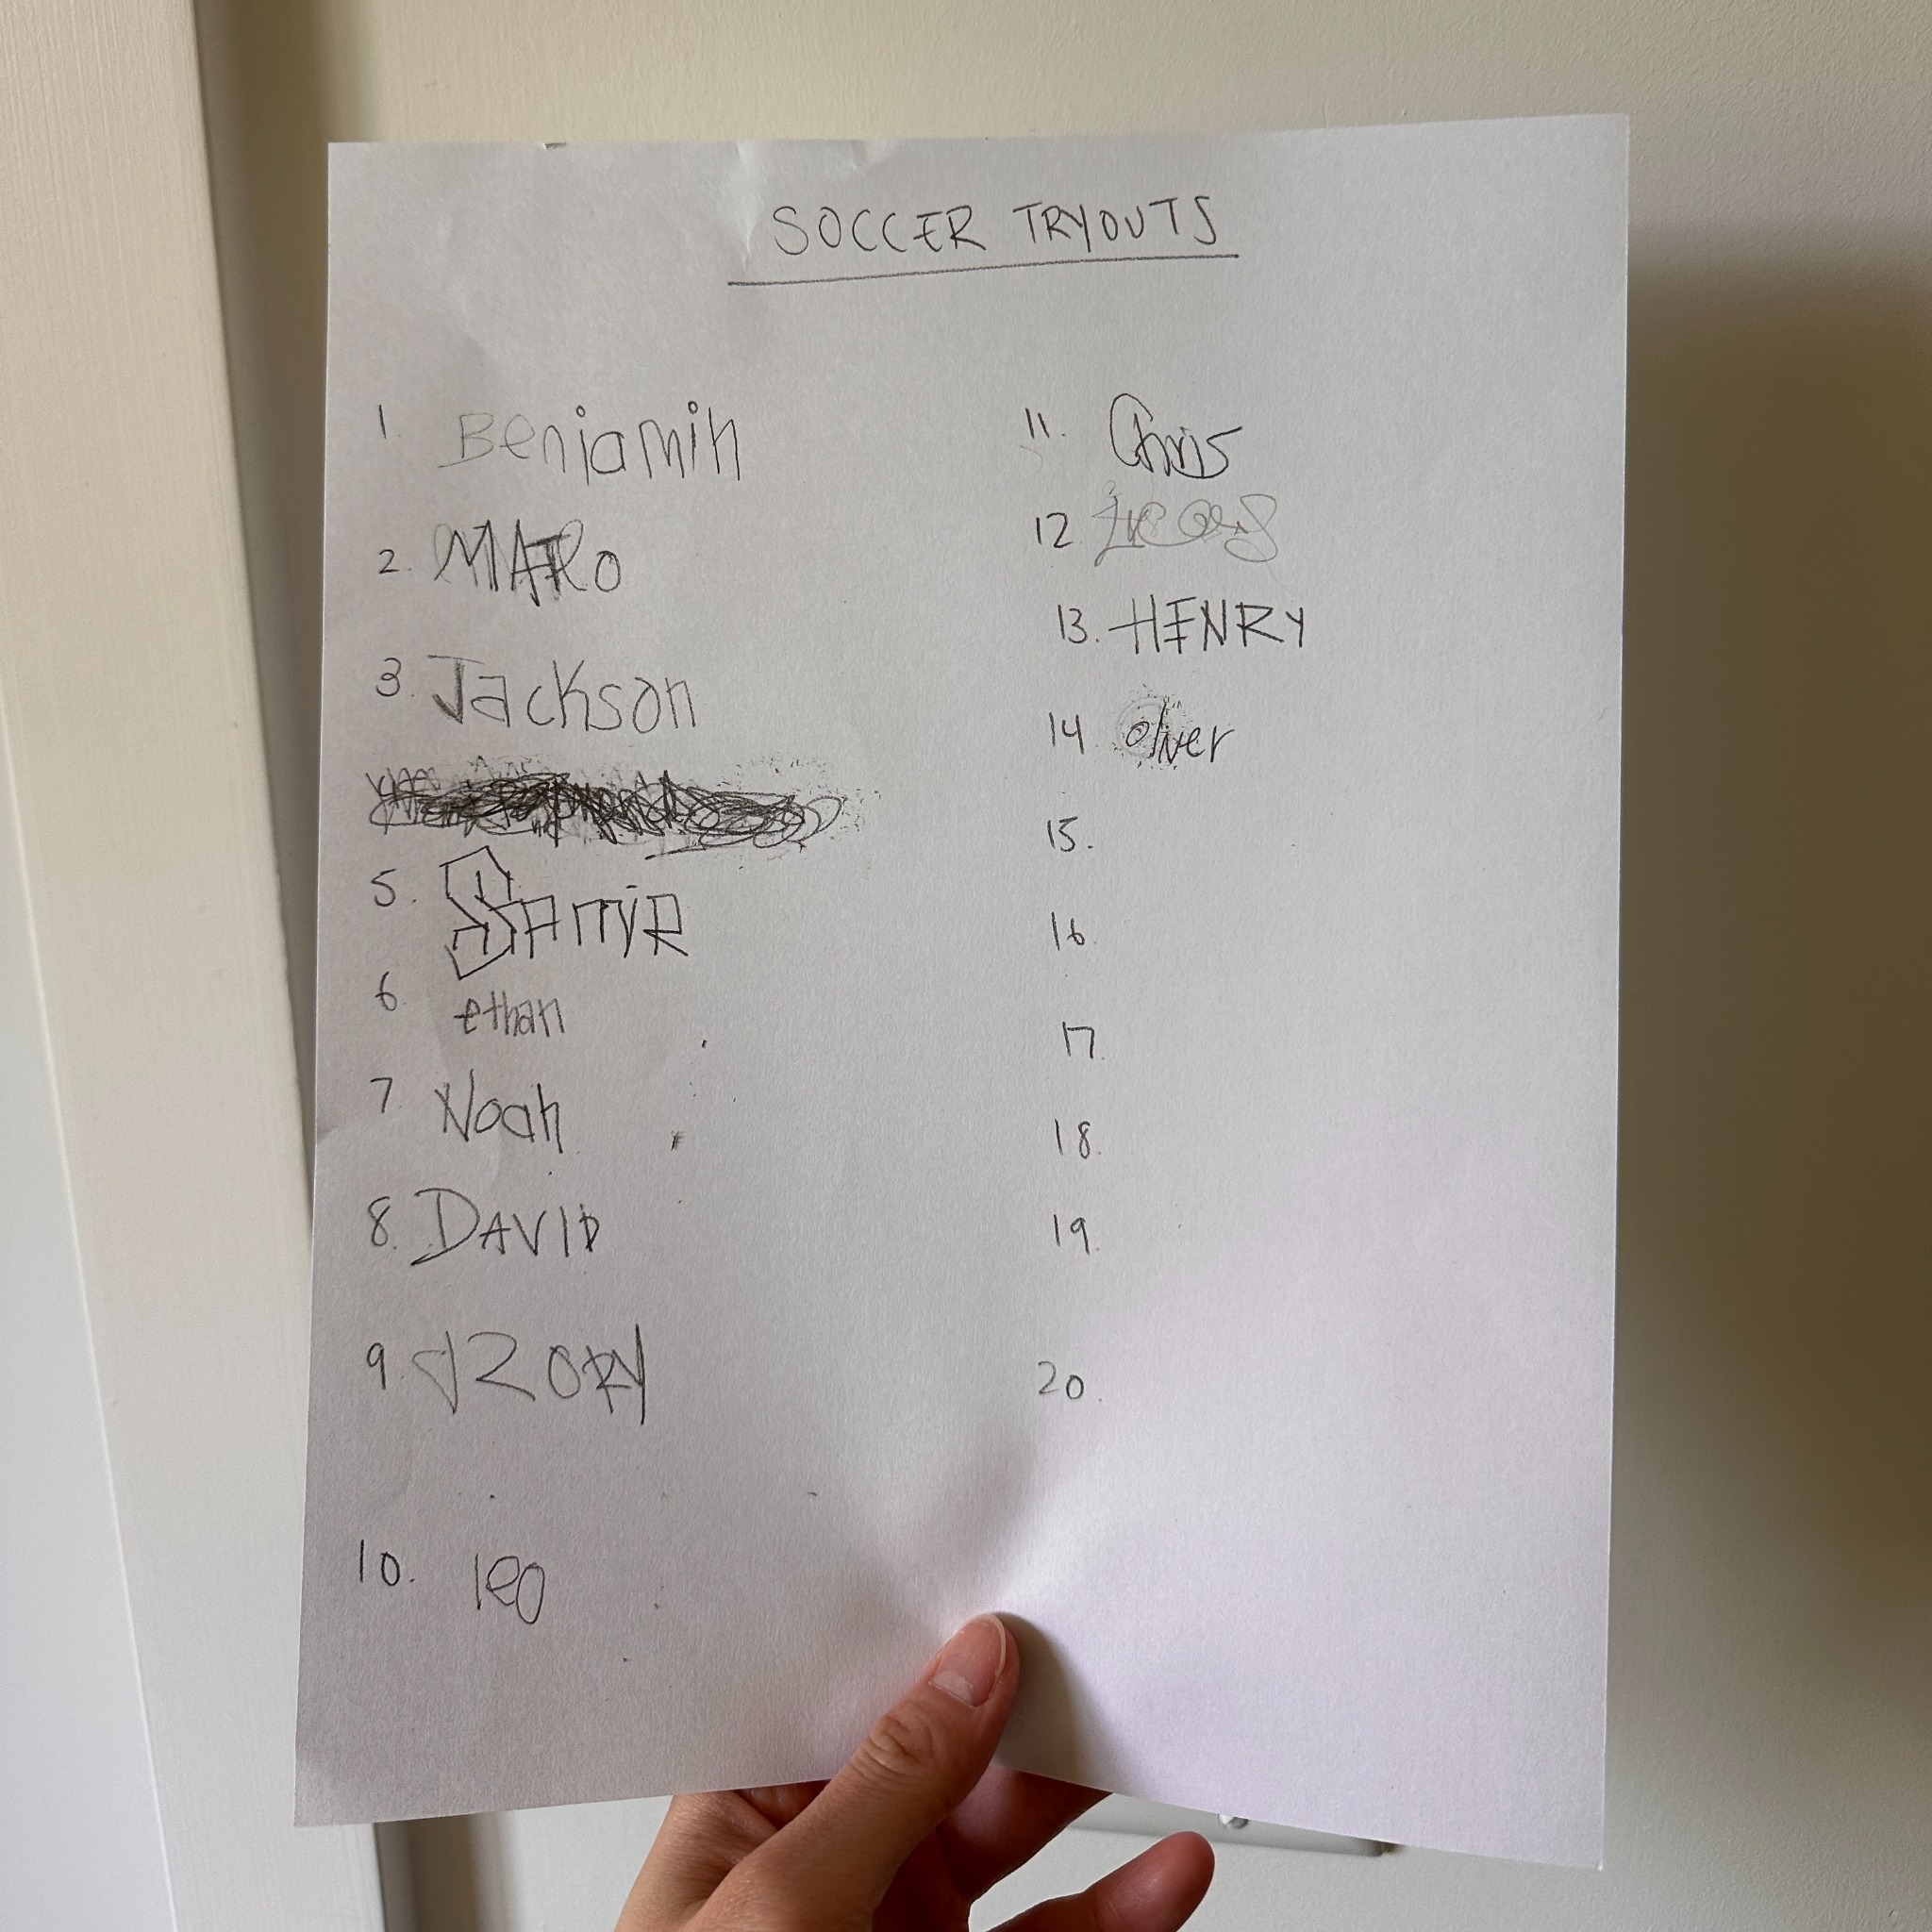 SOCCER TRYOUTS
1. Benjamin
2.
3. Jackson
5. SAMIR
6. ethan
7. Noah
8. DAVID
9.
10. leo
11. Chris
12. Lucas
13. HENRY
14. oliver
15.
16.
17.
18.
19.
20.